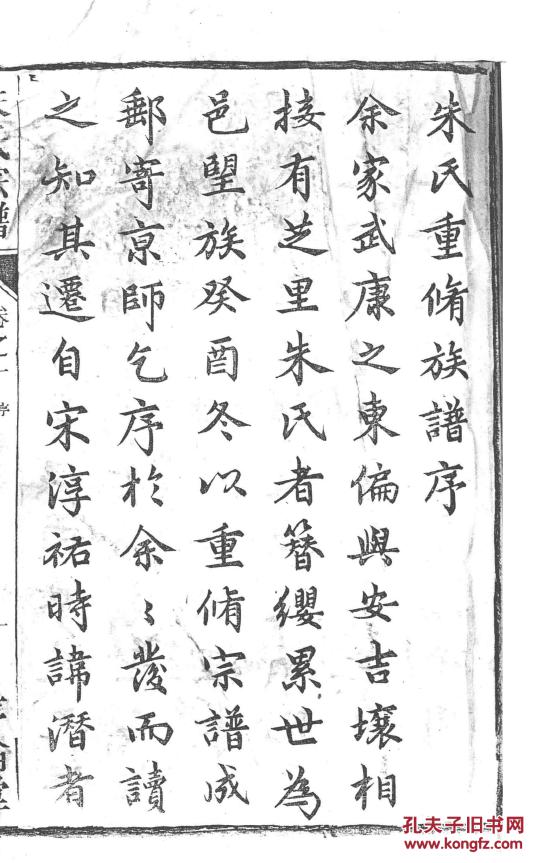 朱氏重脩族譜序
余家武康之東偏與安吉壤相
接有芝里朱氏者簪纓累世為
邑望族癸酉冬以重脩宗譜成
郵寄京師乞序於余〻發而讀
之知其遷自宋淳祐時諱潛者
氏宗譜
卷之一
序
孔夫子旧书网
www.kongfz.com